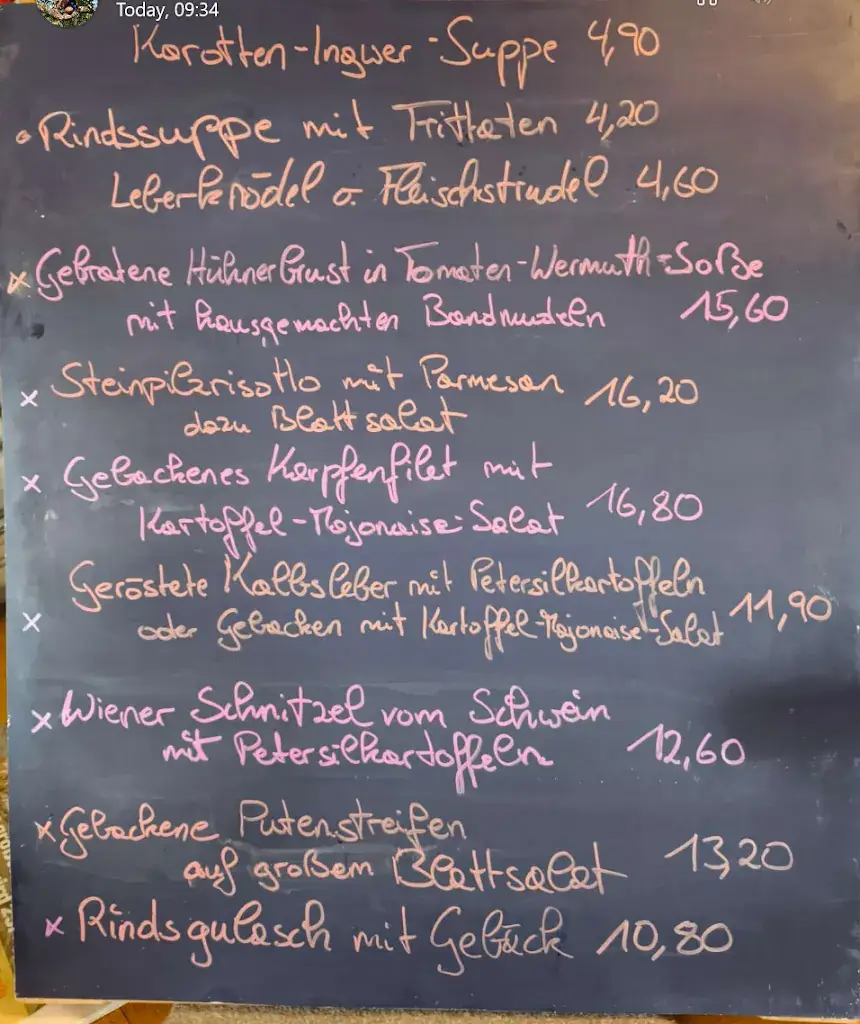 Today, 09:34
Karotten-Ingwer-Suppe 4,90
Rindssuppe mit Frittaten 4,20
Leberknödel o. Fleischstrudel 4,60
x Gebratene Hühnerbrust in Tomaten-Wermuth-Soße
mit hausgemachten Bandnudeln 15,60
x Steinpilzrisotto mit Parmesan 16,20
dazu Blattsalat
x Gebackenes Karpfenfilet mit
Kartoffel-Mojonaise-Salat 16,80
Geröstete Kalbsleber mit Petersilkartoffeln
x oder Gebacken mit Kartoffel-Mojonaise-Salat 11,90
x Wiener Schnitzel vom Schwein
mit Petersilkartoffeln 12,60
x Gebackene Putenstreifen
auf großem Blattsalat 13,20
x Rindsgulasch mit Gebäck 10,80